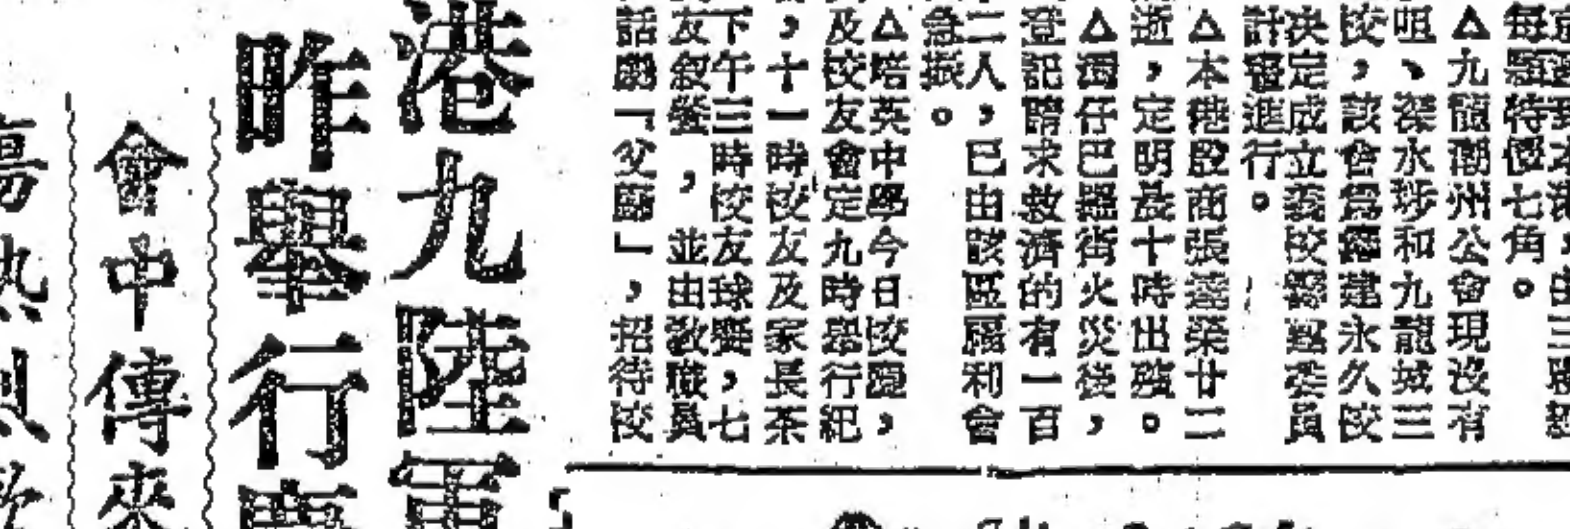 每題特優七角。
△九龍潮州公會現沒有
咀、深水埗和九龍城三
校，該會為籌建永久校
決定成立義校籌募委員
計劃進行。
△本港殷商張蓮榮廿二
逝，定明晨十時出殯。
△灣仔巴路街火災後，
登記請求救濟的有一百
二人，已由該區福利會
急振。
△培英中學今日校慶，
及校友會定九時舉行紀
，十一時校友及家長茶
下午三時校友球賽，七
友叙餐，並由教職員
話劇「父歸」，招待校
港九陸軍
昨舉行
會中傳來